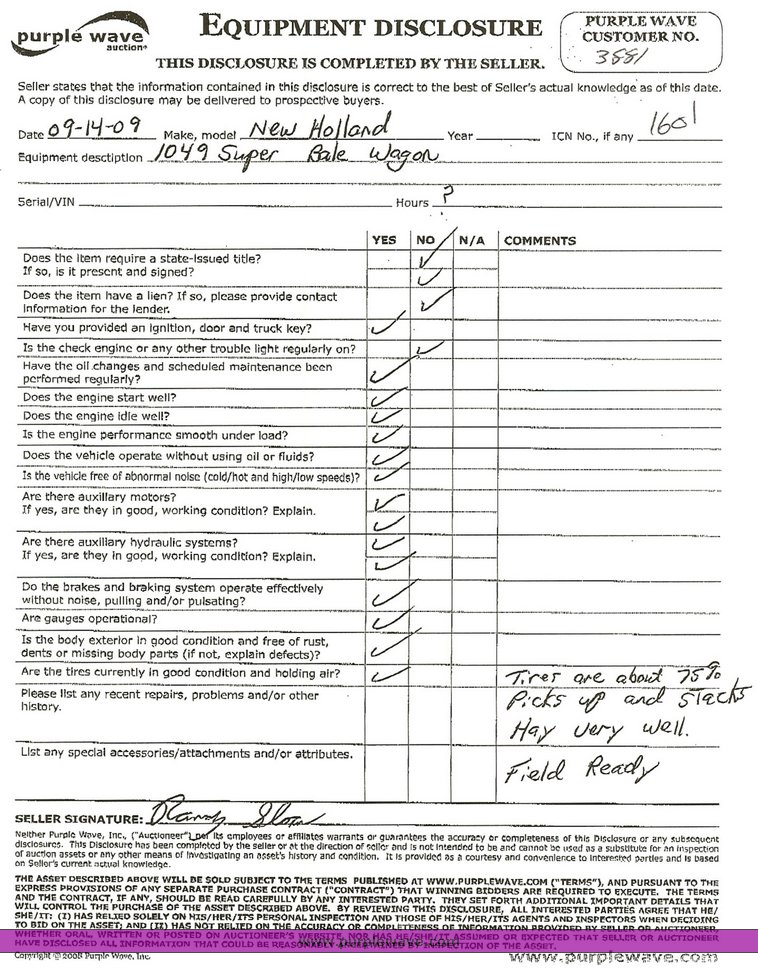 purple wave
auction
EQUIPMENT DISCLOSURE
THIS DISCLOSURE IS COMPLETED BY THE SELLER.
PURPLE WAVE
CUSTOMER NO.
3581
Seller states that the information contained in this disclosure is correct to the best of Seller's actual knowledge as of this date.
A copy of this disclosure may be delivered to prospective buyers.
Date 09-14-09 Make, model New Holland Year ICN No., if any 1601
Equipment desctiption 1049 Super Bale Wagon
Serial/VIN Hours ?
YES NO N/A COMMENTS
Does the item require a state-issued title? ✓
If so, is it present and signed? ✓
Does the item have a lien? If so, please provide contact
information for the lender. ✓
Have you provided an ignition, door and truck key? ✓
Is the check engine or any other trouble light regularly on? ✓
Have the oil changes and scheduled maintenance been
performed regularly? ✓
Does the engine start well? ✓
Does the engine idle well? ✓
Is the engine performance smooth under load? ✓
Does the vehicle operate without using oil or fluids? ✓
Is the vehicle free of abnormal noise (cold/hot and high/low speeds)? ✓
Are there auxiliary motors? ✓
If yes, are they in good, working condition? Explain. ✓
Are there auxiliary hydraulic systems? ✓
If yes, are they in good, working condition? Explain. ✓
Do the brakes and braking system operate effectively
without noise, pulling and/or pulsating? ✓
Are gauges operational? ✓
Is the body exterior in good condition and free of rust,
dents or missing body parts (if not, explain defects)? ✓
Are the tires currently in good condition and holding air? ✓ Tires are about 75%
Please list any recent repairs, problems and/or other Picks up and stacks
history. Hay very well.
List any special accessories/attachments and/or attributes. Field Ready
SELLER SIGNATURE: Randy
Neither Purple Wave, Inc., ("Auctioneer") nor its employees or affiliates warrants or guarantees the accuracy or completeness of this Disclosure or any subsequent
disclosures. This Disclosure has been completed by the seller or at the direction of seller and is not intended to be and cannot be used as a substitute for an inspection
of auction assets or any other means of investigating an asset's history and condition. It is provided as a courtesy and convenience to interested parties and is based
on Seller's current actual knowledge.
THE ASSET DESCRIBED ABOVE WILL BE SOLD SUBJECT TO THE TERMS PUBLISHED AT WWW.PURPLEWAVE.COM ("TERMS"), AND PURSUANT TO THE
EXPRESS PROVISIONS OF ANY SEPARATE PURCHASE CONTRACT ("CONTRACT") THAT WINNING BIDDERS ARE REQUIRED TO EXECUTE. THE TERMS
AND THE CONTRACT, IF ANY, SHOULD BE READ CAREFULLY BY ANY INTERESTED PARTY. THEY SET FORTH ADDITIONAL IMPORTANT DETAILS THAT
WILL CONTROL THE PURCHASE OF THE ASSET DESCRIBED ABOVE. BY REVIEWING THIS DISCLOSURE, ALL INTERESTED PARTIES AGREE THAT HE/
SHE/IT: (I) HAS RELIED SOLELY ON HIS/HER/ITS PERSONAL INSPECTION AND THOSE OF HIS/HER/ITS AGENTS AND INSPECTORS WHEN DECIDING
TO BID ON THE ASSET; AND (II) HAS NOT RELIED ON THE ACCURACY OR COMPLETENESS OF INFORMATION PROVIDED BY SELLER OR AUCTIONEER,
WHETHER ORAL, WRITTEN OR POSTED ON AUCTIONEER'S WEBSITE, NOR HAS HE/SHE/IT ASSUMED OR EXPECTED THAT SELLER OR AUCTIONEER
HAVE DISCLOSED ALL INFORMATION THAT COULD BE REASONABLY ASCERTAINED BY INSPECTION OF THE ASSET.
www.purplewave.com
Copyright © 2008 Purple Wave, Inc.
www.purplewave.com